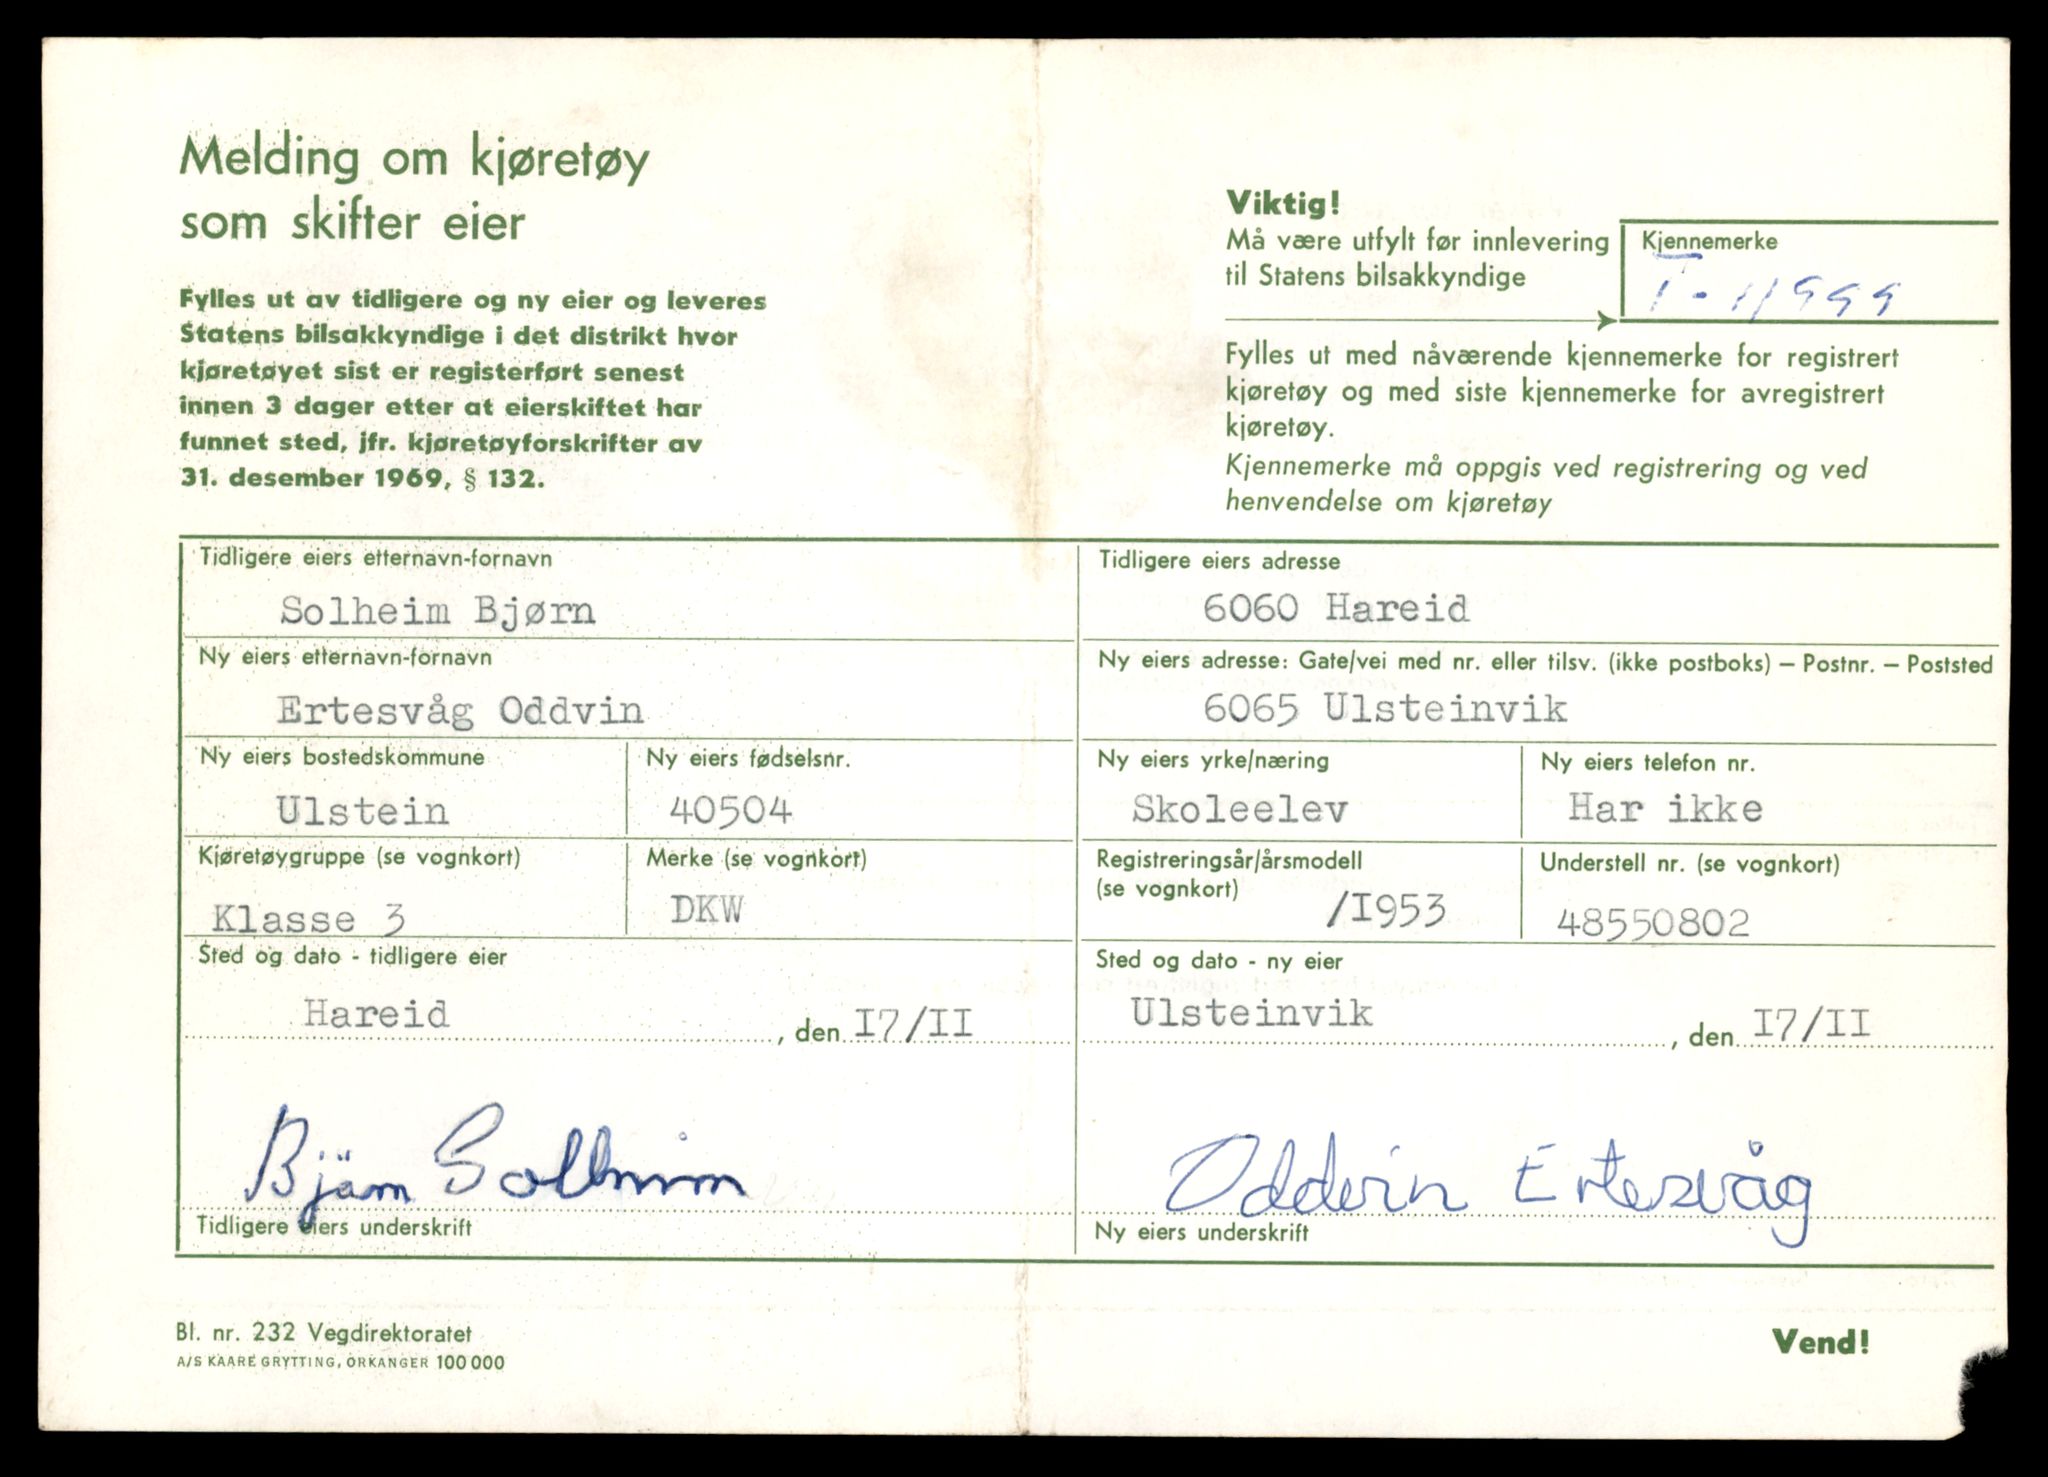 Melding om kjøretøy
som skifter eier
Fylles ut av tidligere og ny eier og leveres
Statens bilsakkyndige i det distrikt hvor
kjøretøyet sist er registerført senest
innen 3 dager etter at eierskiftet har
funnet sted, jfr. kjøretøyforskrifter av
31. desember 1969, § 132.
Viktig!
Må være utfylt før innlevering
til Statens bilsakkyndige
Kjennemerke
T-11999
Fylles ut med nåværende kjennemerke for registrert
kjøretøy og med siste kjennemerke for avregistrert
kjøretøy.
Kjennemerke må oppgis ved registrering og ved
henvendelse om kjøretøy
Tidligere eiers etternavn-fornavn
Solheim Bjørn
Tidligere eiers adresse
6060 Hareid
Ny eiers etternavn-fornavn
Ertesvåg Oddvin
Ny eiers adresse: Gate/vei med nr. eller tilsv. (ikke postboks) – Postnr. – Poststed
6065 Ulsteinvik
Ny eiers bostedskommune
Ulstein
Ny eiers fødselsnr.
40504
Ny eiers yrke/næring
Skoleelev
Ny eiers telefon nr.
Har ikke
Kjøretøygruppe (se vognkort)
Klasse 3
Merke (se vognkort)
DKW
Registreringsår/årsmodell
(se vognkort)
/I953
Understell nr. (se vognkort)
48550802
Sted og dato - tidligere eier
Hareid, den I7/II
Sted og dato - ny eier
Ulsteinvik, den I7/II
Bjørn Solheim
Tidligere eiers underskrift
Oddvin Ertesvåg
Ny eiers underskrift
Bl. nr. 232 Vegdirektoratet
A/S KAARE GRYTTING, ORKANGER 100 000
Vend!